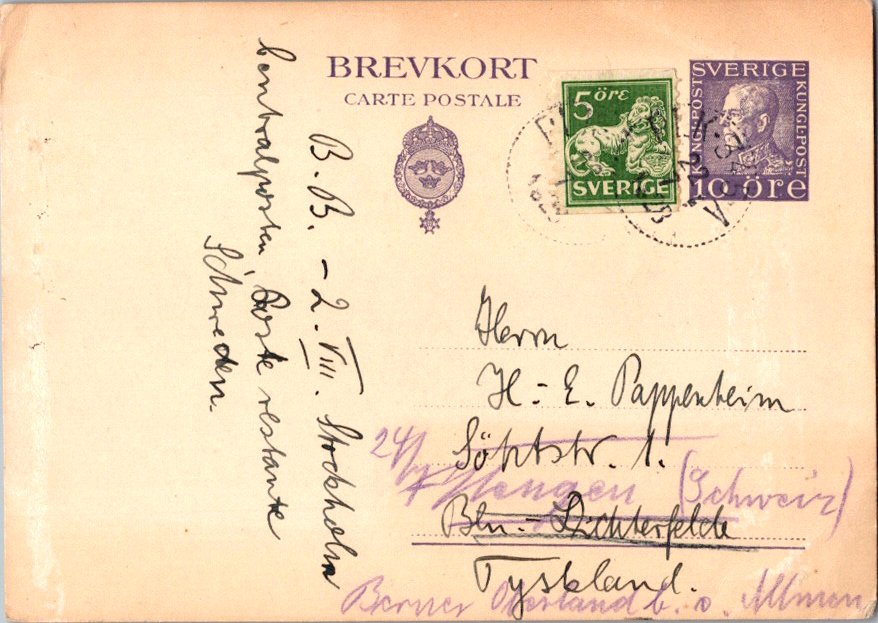 BREVKORT
CARTE POSTALE
5 öre
SVERIGE
SVERIGE
KUNGL·POST
KUNGL·POST
10 öre
B. B. - 2. VIII. Stockholm
Centralposten, Poste restante
Schweden.
Herrn
H.-E. Pappenheim
Söhtstr. 1.
24/7
Wengen (Schweiz)
Bln.-Lichterfelde
Tyskland.
Berner Oberland b. v. Allmen